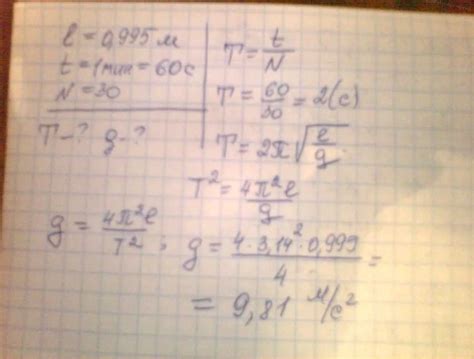 ℓ = 0,995 м
t = 1 мин = 60 с
N = 30
T - ? g - ?
T = t/N
T = 60/30 = 2(с)
T = 2π√(ℓ/g)
T² = 4π²ℓ/g
g = 4π²ℓ/T² ; g = 4 · 3,14² · 0,999/4 =
= 9,81 м/с²